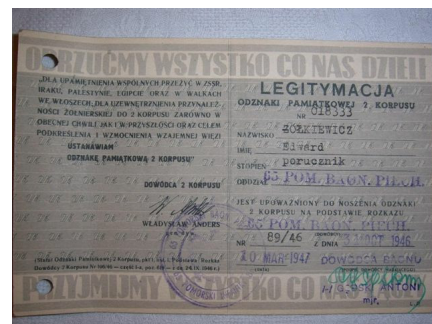 ODRZUĆMY WSZYSTKO CO NAS DZIELI
„DLA UPAMIĘTNIENIA WSPÓLNYCH PRZEŻYĆ W ZSSR,
IRAKU, PALESTYNIE, EGIPCIE ORAZ W WALKACH
WE WŁOSZECH, DLA UZEWNĘTRZNIENIA PRZYNALEŻ-
NOŚCI ŻOŁNIERSKIEJ DO 2 KORPUSU ZARÓWNO W
OBECNEJ CHWILI JAK I W PRZYSZŁOŚCI ORAZ CELEM
PODKREŚLENIA I WZMOCNIENIA WZAJEMNEJ WIĘZI
USTANAWIAM
ODZNAKĘ PAMIĄTKOWĄ 2 KORPUSU"
DOWÓDCA 2 KORPUSU
WŁADYSŁAW ANDERS
(Statut Odznaki Pamiątkowej 2 Korpusu,
LEGITYMACJA
ODZNAKI PAMIĄTKOWEJ 2 KORPUSU
NR 018333
NAZWISKO ŻÓŁKIEWICZ
IMIĘ Edward
STOPIEŃ porucznik
ODDZIAŁ 65 POM. BAON. PIECH.
JEST UPOWAŻNIONY DO NOSZENIA ODZNAKI
2 KORPUSU NA PODSTAWIE ROZKAZU
65 POM. BAON. PIECH.
NR 89/46 Z DNIA 1946.
10 MAR 1947 DOWÓDCA BAONU
ANTONI
mjr.
PRZYJMIJMY WSZYSTKO CO NAS